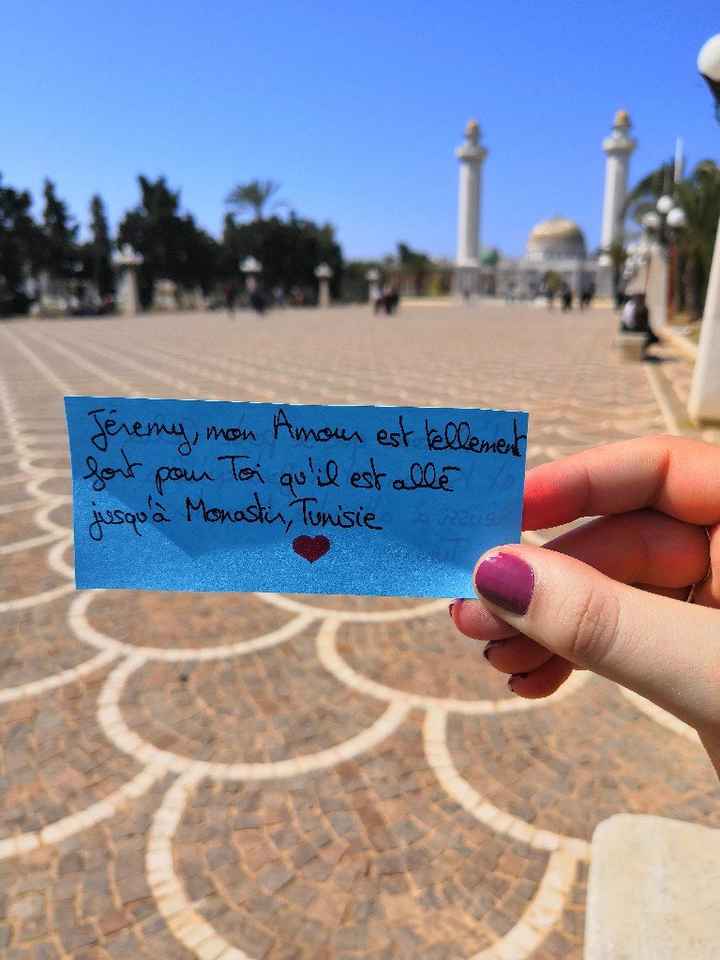 Jéremy, mon Amour est tellement
fort pour Toi qu'il est allé
jusqu'à Monastir, Tunisie